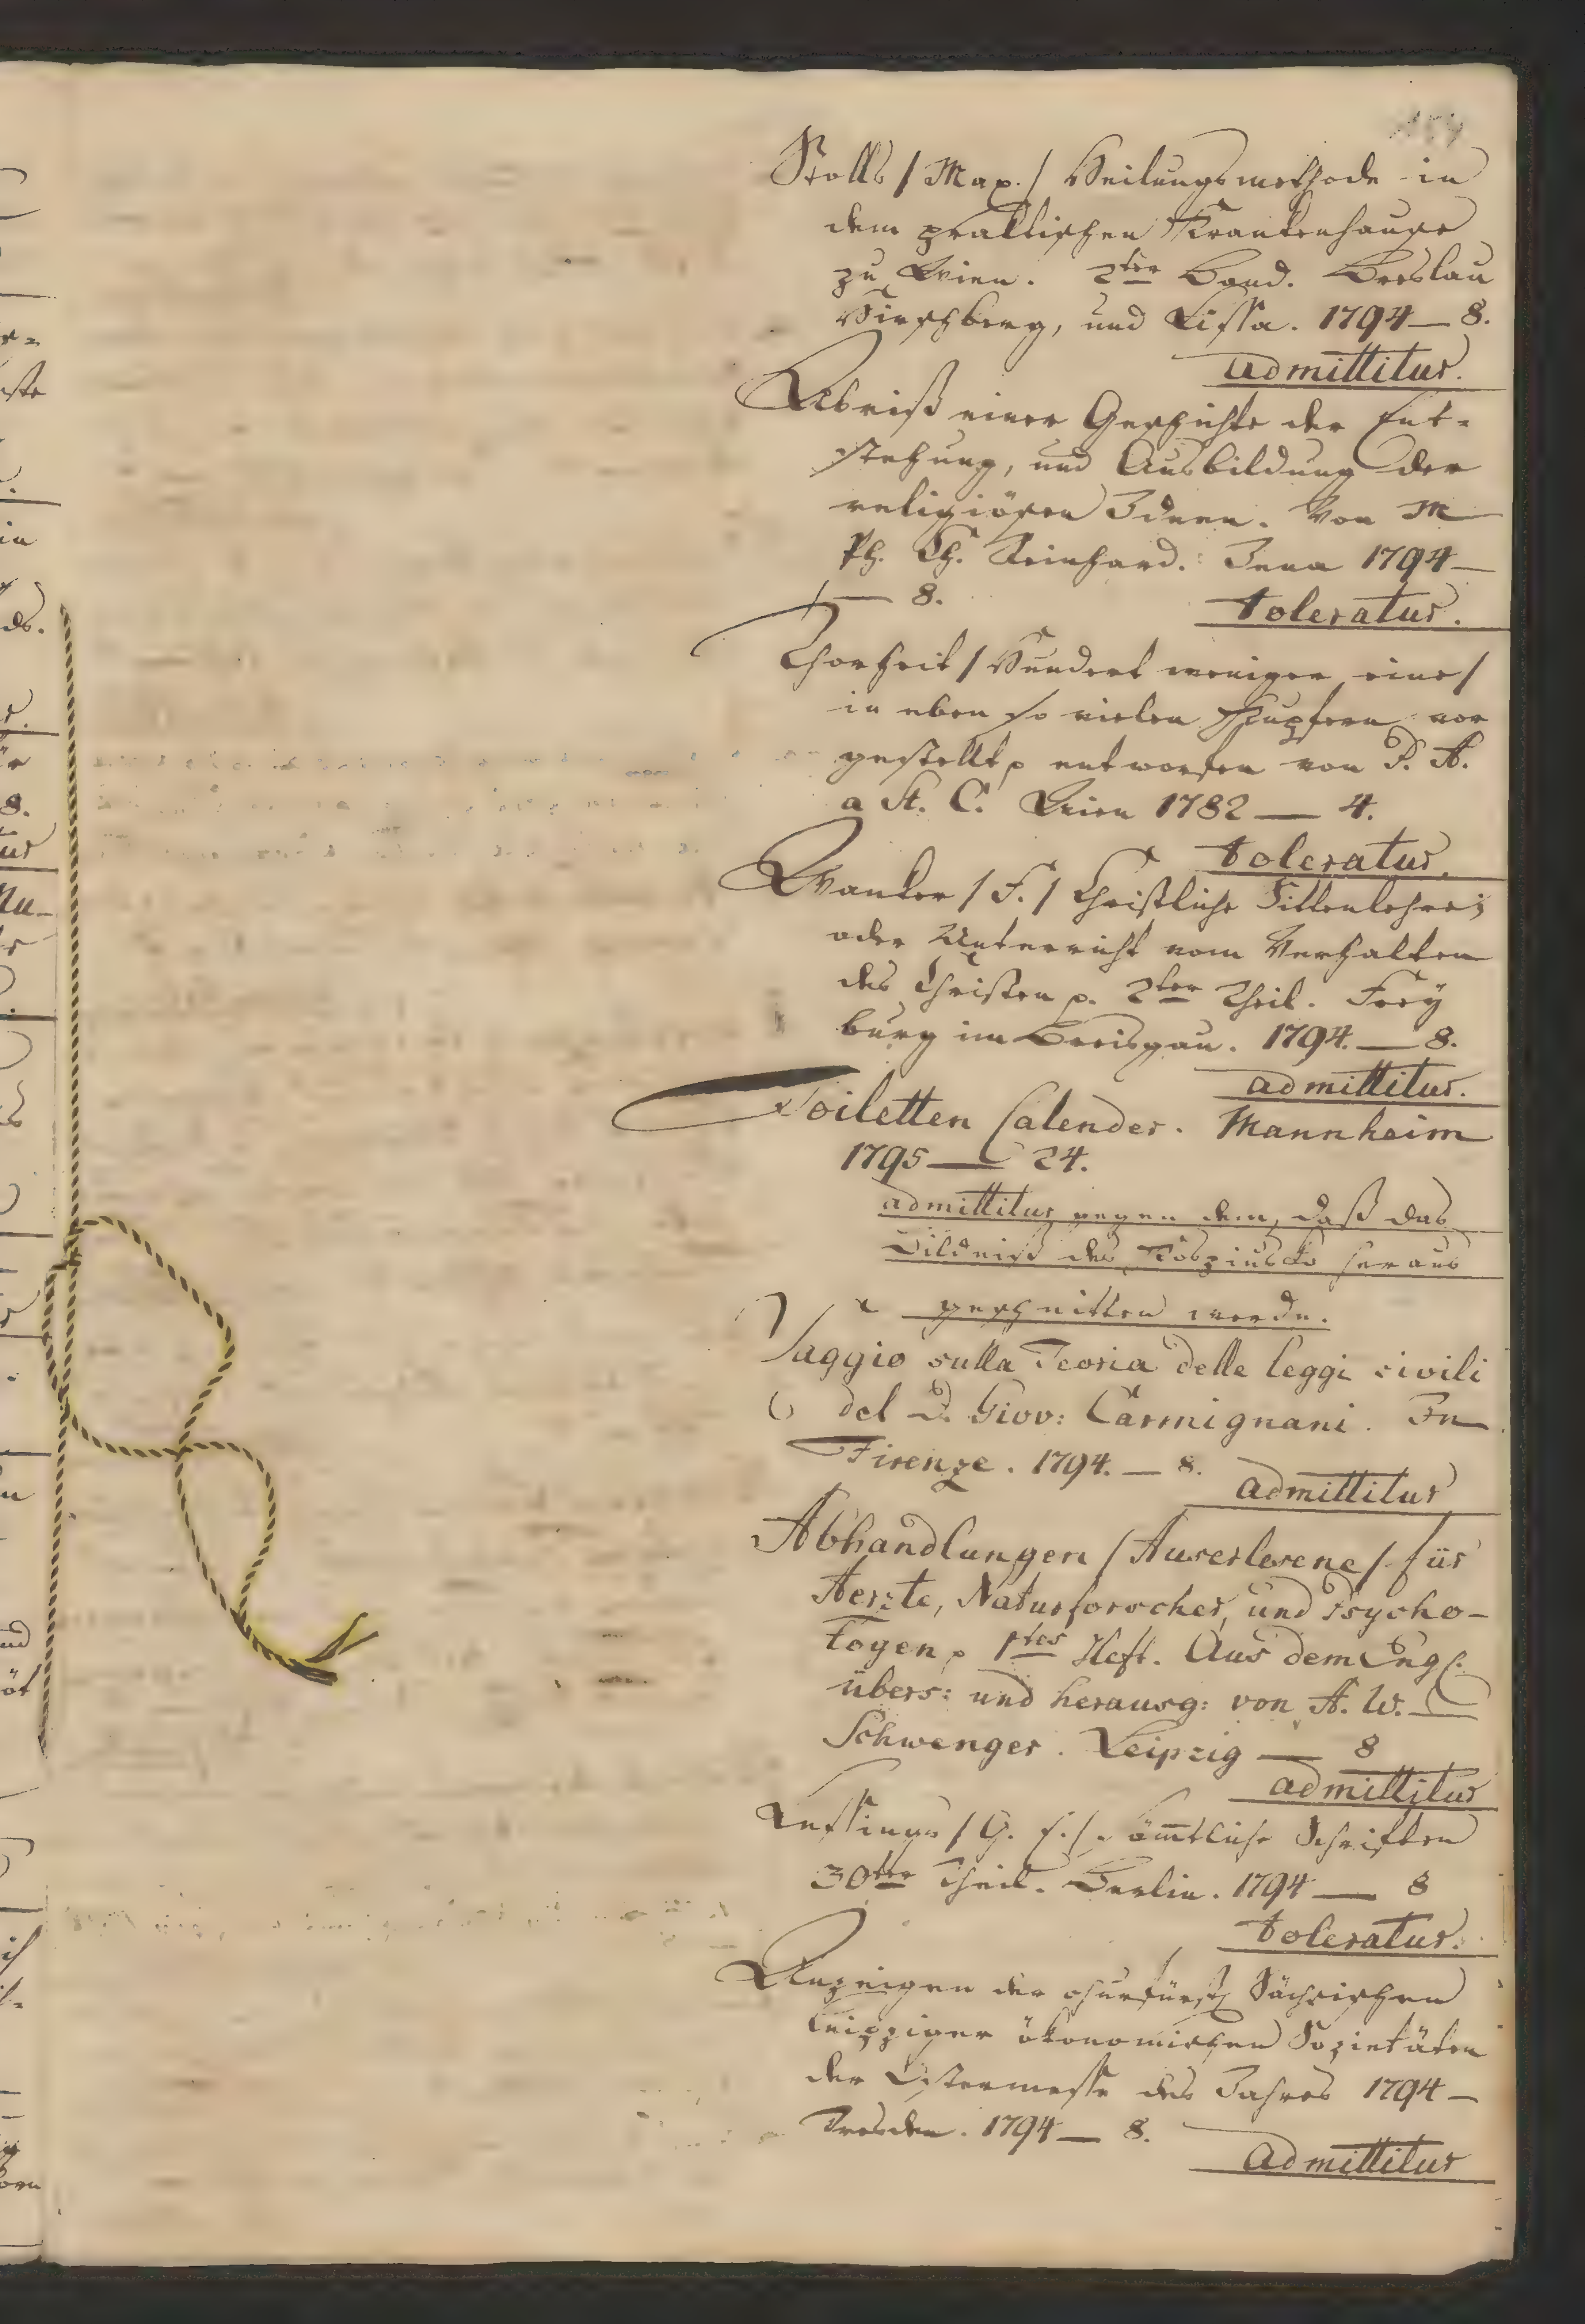 Stolls / Max. / Heilungsmethode in
dem praktischen Krankenhause
zu Wien. 2ter Band. Breslau
Hirschberg, und Lissa. 1794 — 8.
admittitur.
Abriß einer Geschichte der Ent-
stehung, und Ausbildung der
religiösen Ideen. Von M
Ph. Ch. Reinhard. Jena 1794 —
— 8.
toleratur.
Thorheit / Hundert weniger eine /
in eben so vielen Kupfern vor
gestellt p entworfen von P. A.
a St. C. Wien 1782 — 4.
toleratur.
Wanker / F. / Christliche Sittenlehre;
oder Unterricht vom Verhalten
des Christen p. 2ter Theil. Frey
burg im Breisgau. 1794. — 8.
admittitur.
Toiletten Calender. Mannheim
1795 — 24.
admittitur gegen dem, daß das
Bildniß des Kosziusko heraus
geschnitten werde.
Saggio sulla Teoria delle leggi civili
del D. Giov: Carmignani. In
Firenze. 1794. — 8.
admittitur
Abhandlungen / Auserlesene / für
Aerzte, Naturforscher, und Psycho-
logen p 1tes Heft. Aus dem Engl.
übers: und herausg: von A. W.
Schwenger. Leipzig — 8
admittitur
Lessings / G. E. / sämtliche Schriften
30ter Theil. Berlin. 1794 — 8
toleratur.
Anzeigen der churfürstl Sächsischen
Leipziger ökonomischen Sozietäten
der Ostermesse des Jahres 1794 —
Dresden. 1794 — 8.
admittitur